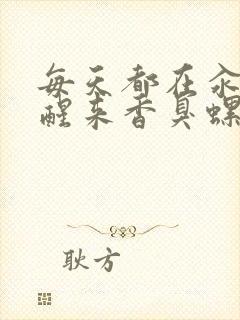 每天都在汆
醒来香臭螺
耿方